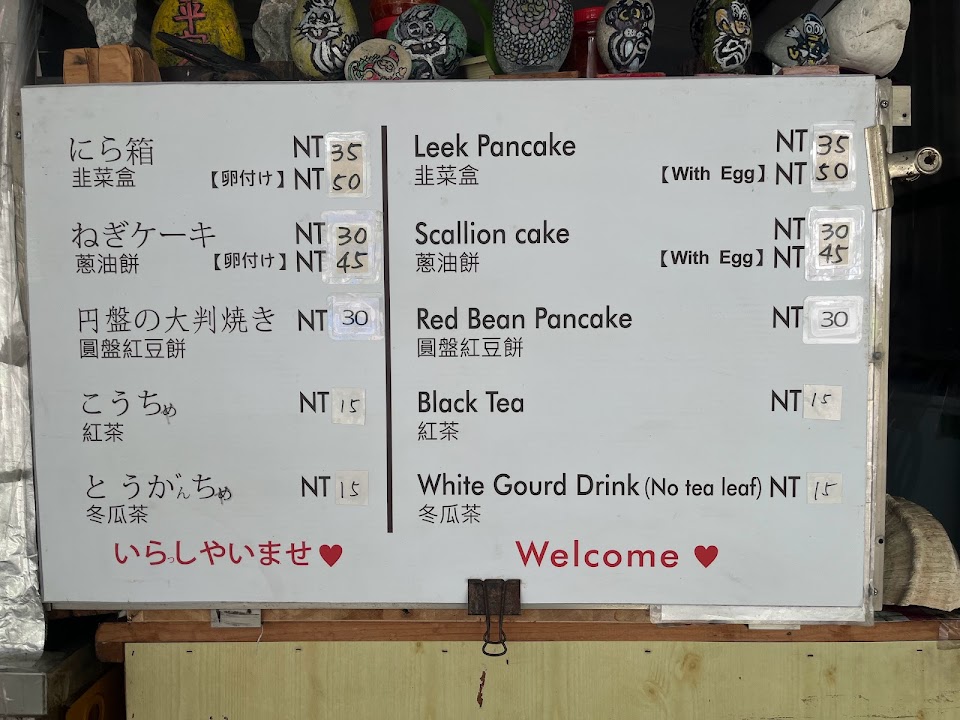 平
にら箱 NT 35
韭菜盒 【卵付け】 NT 50
ねぎケーキ NT 30
蔥油餅 【卵付け】 NT 45
円盤の大判焼き NT 30
圓盤紅豆餅
こうちめ NT 15
紅茶
とうがんちめ NT 15
冬瓜茶
いらっしやいませ♥
Leek Pancake NT 35
韭菜盒 【With Egg】 NT 50
Scallion cake NT 30
蔥油餅 【With Egg】 NT 45
Red Bean Pancake NT 30
圓盤紅豆餅
Black Tea NT 15
紅茶
White Gourd Drink (No tea leaf) NT 15
冬瓜茶
Welcome ♥